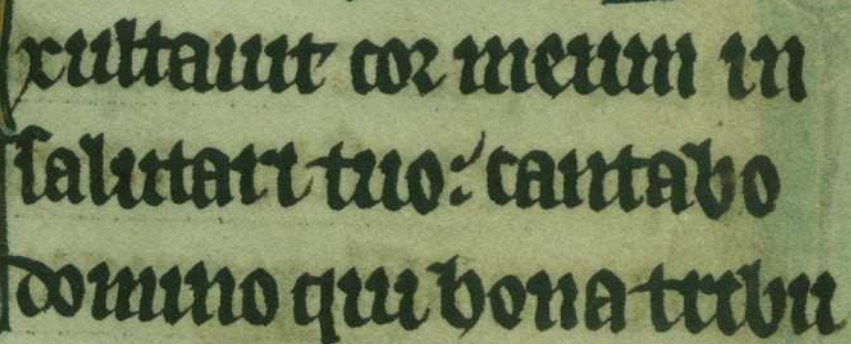 xultauit cor meum in
salutari tuo: cantabo
domino qui bona tribu